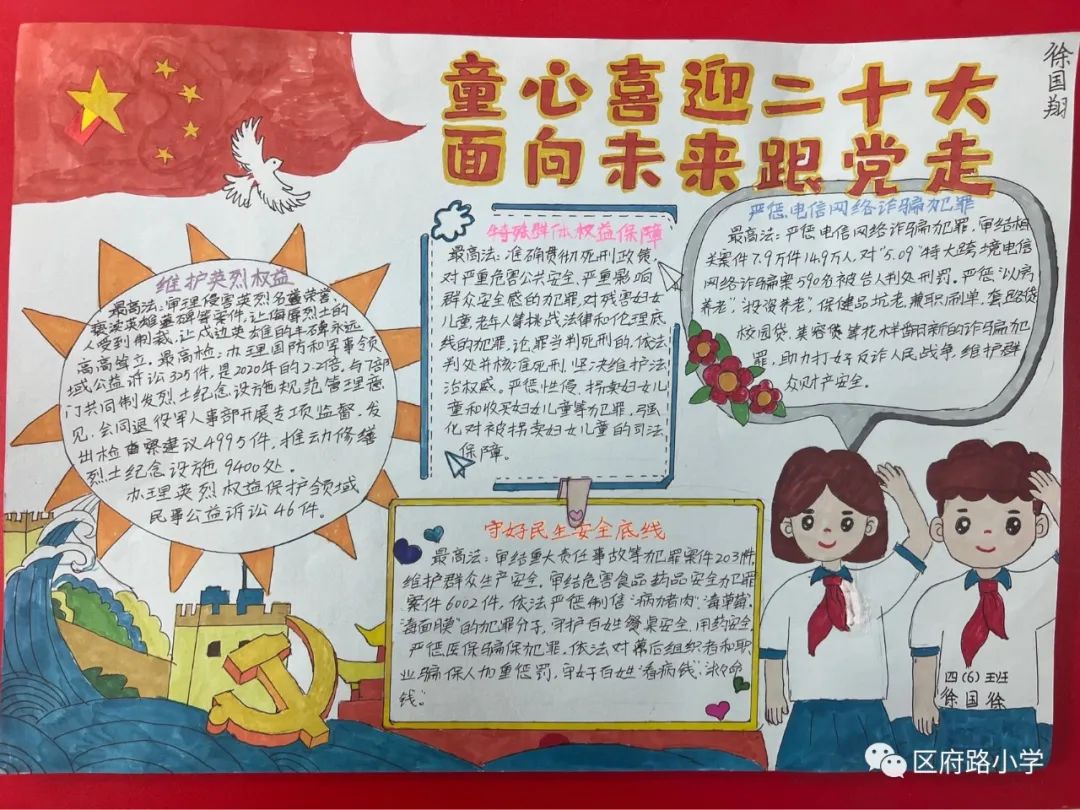 童心喜迎二十大
面向未来跟党走
徐国翔
维护英烈权益
最高法：审理侵害英烈名誉荣誉、
亵渎英雄基碑等案件，让侮辱烈士的
人受到制裁，让戍边英雄的丰碑永远
高高耸立。最高检：办理国防和军事领
域公益诉讼325件，是2020年的2.2倍，与7部
门共同制发烈士纪念设施规范管理意
见，会同退役军人事部开展专项监督，发
出检查察建议4995件，推动修缮
烈士纪念设施9400处。
办理英烈权益保护领域
民事公益诉讼46件。
特殊群体权益保障
最高法：准确贯彻死刑政策，
对严重危害公共安全、严重影响
群众安全感的犯罪，对残害妇女
儿童、老年人等挑战法律和伦理底
线的犯罪，论罪当判死刑的，依法
判处并核准死刑，坚决维护法
治权威。严惩性侵、拐卖妇女儿
童和收买妇女儿童等犯罪，强
化对被拐卖妇女儿童的司法
保障。
严惩电信网络诈骗犯罪
最高法：严惩电信网络诈骗犯罪，审结相
关案件7.9万件14.9万人，对“5.09”特大跨境电信
网络诈骗案590名被告人判处刑罚。严惩“以房
养老”，“投资养老”，保健品坑老，兼职刷单，套路贷
校园贷、美容贷等花木样翻新的诈骗犯
罪，助力打好反诈人民战争，维护群
众财产安全。
守好民生安全底线
最高法：审结重大责任事故等犯罪案件203件，
维护群众生产安全。审结危害食品药品安全犯罪
案件6002件，依法严惩制售“病猪肉”“毒草莓”
“毒面膜”的犯罪分子，守护百姓餐桌安全、用药安全。
严惩医保骗保犯罪，依法对幕后组织者和职
业骗保人加重惩罚，守好百姓“看病线”“救命
线”。
四(6)班
徐国徐
区府路小学